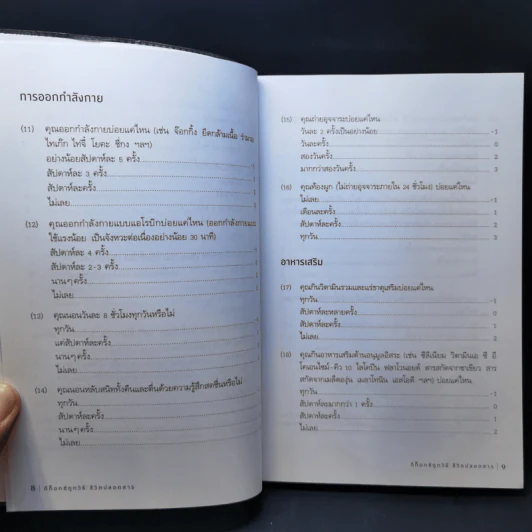 การออกกำลังกาย
(11) คุณออกกำลังกายบ่อยแค่ไหน (เช่น จ๊อกกิ้ง ยืดกล้ามเนื้อ รำมวย
ไทเก๊ก ไทจี๋ โยคะ ชี่กง ฯลฯ)
อย่างน้อยสัปดาห์ละ 5 ครั้ง -1
สัปดาห์ละ 3 ครั้ง
สัปดาห์ละครั้ง
ไม่เลย
(12) คุณออกกำลังกายแบบแอโรบิกบ่อยแค่ไหน (ออกกำลังกายแบบ
ใช้แรงน้อย เป็นจังหวะต่อเนื่องอย่างน้อย 30 นาที)
สัปดาห์ละ 4 ครั้ง
สัปดาห์ละ 2-3 ครั้ง
นานๆครั้ง
ไม่เลย
(13) คุณนอนวันละ 8 ชั่วโมงทุกวันหรือไม่
ทุกวัน
แต่สัปดาห์ละครั้ง
นานๆครั้ง
ไม่เลย
(14) คุณนอนหลับสนิททั้งคืนและตื่นด้วยความรู้สึกสดชื่นหรือไม่
ทุกวัน
สัปดาห์ละครั้ง
นานๆครั้ง
ไม่เลย
8 | ดีท็อกซ์ถูกวิธี ชีวิตปลอดสาร
(15) คุณถ่ายอุจจาระบ่อยแค่ไหน
วันละ 2 ครั้งเป็นอย่างน้อย -1
วันละครั้ง 0
สองวันครั้ง 2
มากกว่าสองวันครั้ง 3
(16) คุณท้องผูก (ไม่ถ่ายอุจจาระภายใน 24 ชั่วโมง) บ่อยแค่ไหน
ไม่เลย -1
เดือนละครั้ง 1
สัปดาห์ละครั้ง 2
ทุกวัน 3
อาหารเสริม
(17) คุณกินวิตามินรวมและแร่ธาตุเสริมบ่อยแค่ไหน
ทุกวัน -1
สัปดาห์ละหลายครั้ง 0
สัปดาห์ละครั้ง 1
ไม่เลย 2
(18) คุณกินอาหารเสริมต้านอนุมูลอิสระ (เช่น ซีลีเนียม วิตามินเอ ซี อี
โคเอนไซม์-คิว 10 ไลโคปีน ฟลาโวนอยด์ สารสกัดจากชาเขียว สาร
สกัดจากเมล็ดองุ่น เมลาโทนิน เอสโอดี ฯลฯ) บ่อยแค่ไหน
ทุกวัน -1
สัปดาห์ละมากกว่า 1 ครั้ง 0
สัปดาห์ละครั้ง 1
ไม่เลย 2
ดีท็อกซ์ถูกวิธี ชีวิตปลอดสาร | 9